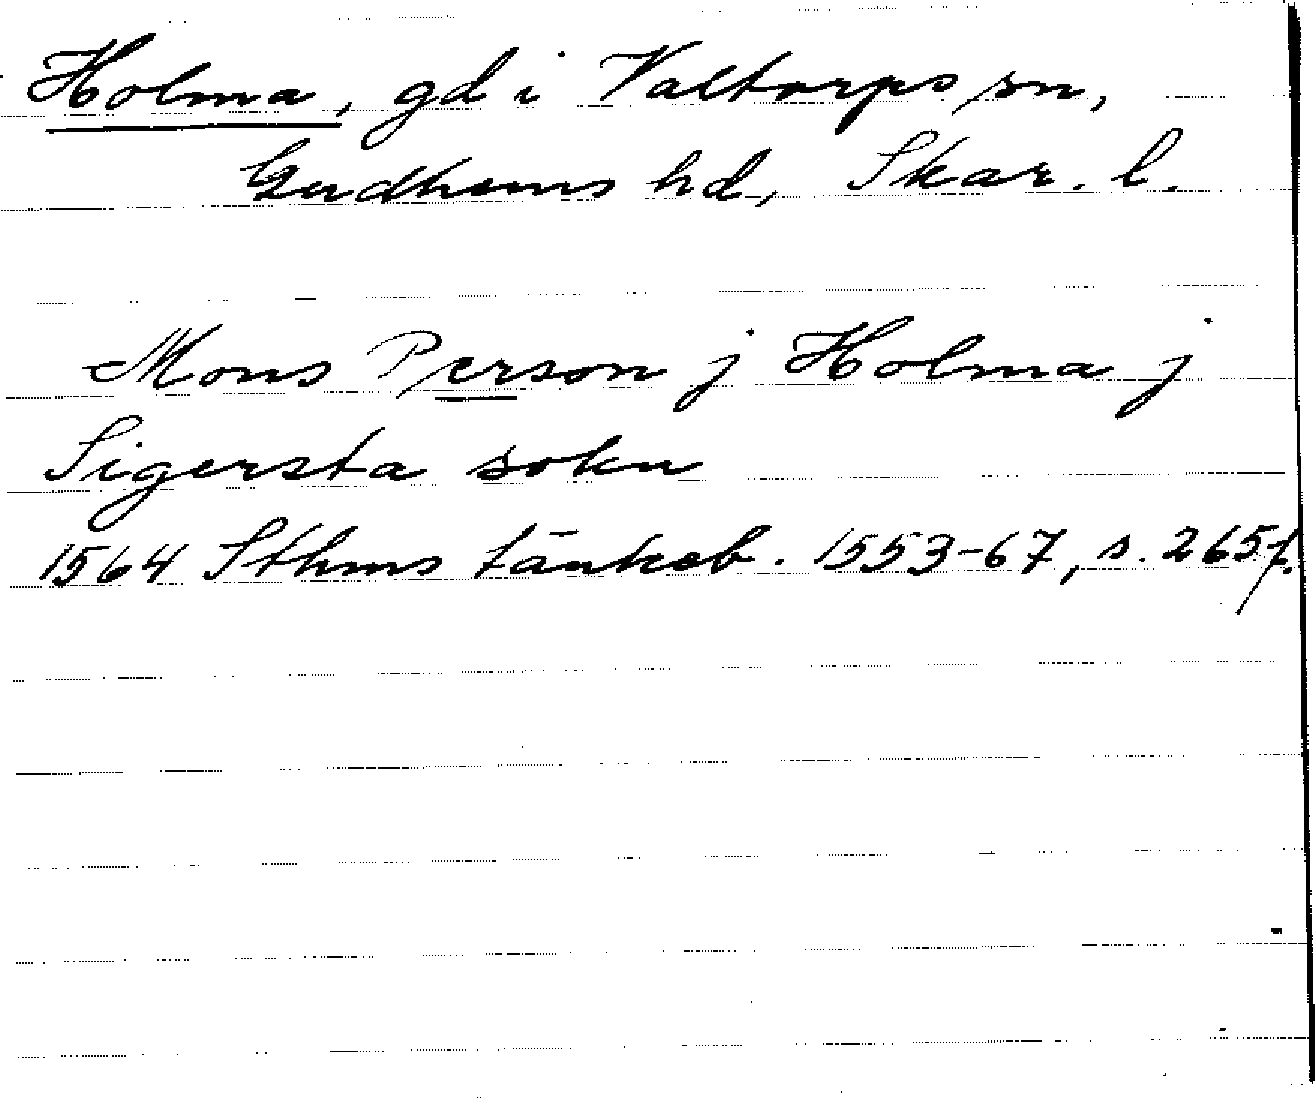 Holma, gd i Valtorps sn,
Gudhems hd, Skar. l.
Mons Person j Holma j
Sigersta sokn
1564 Sthms tänkeb. 1553-67, s. 265f.